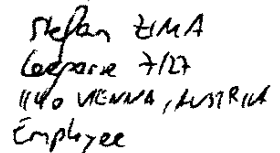 Stefan ZIMA
7/27
1140 VIENNA, AUSTRIA
Employee